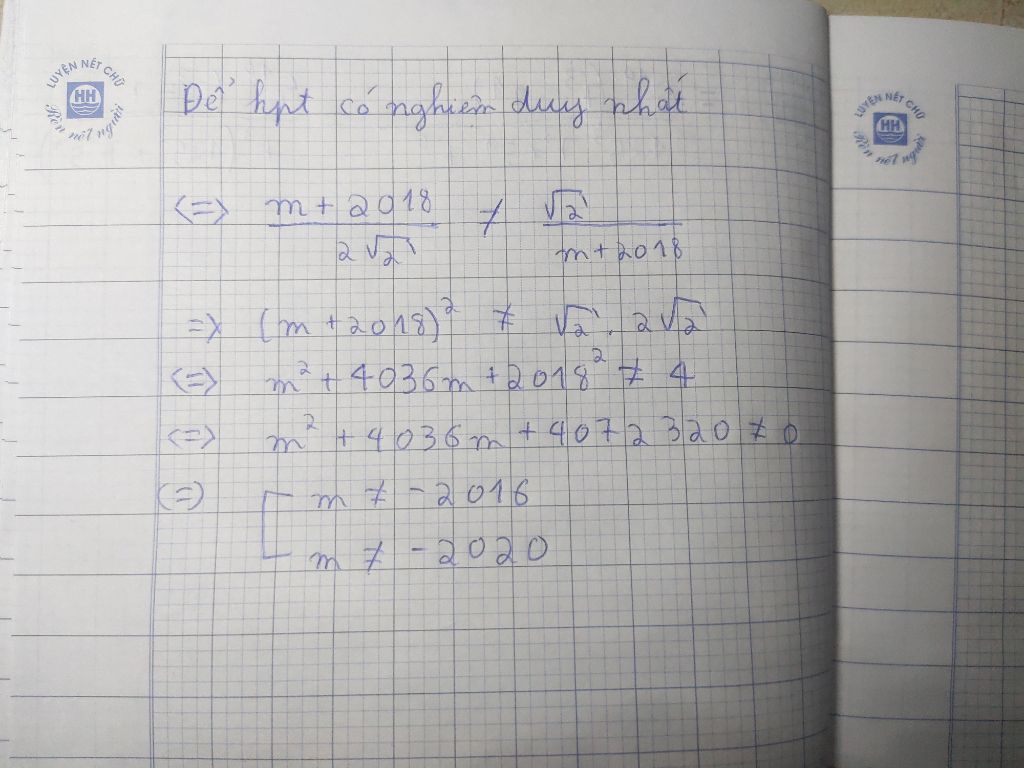 LUYỆN NẾT CHỮ
HH
Rèn nết người
Để hpt có nghiệm duy nhất
<=> m + 2018 / 2√2 ≠ √2 / m + 2018
=> (m + 2018)² ≠ √2 . 2√2
<=> m² + 4036m + 2018² ≠ 4
<=> m² + 4036m + 4072320 ≠ 0
(=) [ m ≠ -2016
m ≠ -2020
LUYỆN NẾT CHỮ
HH
Rèn nết người